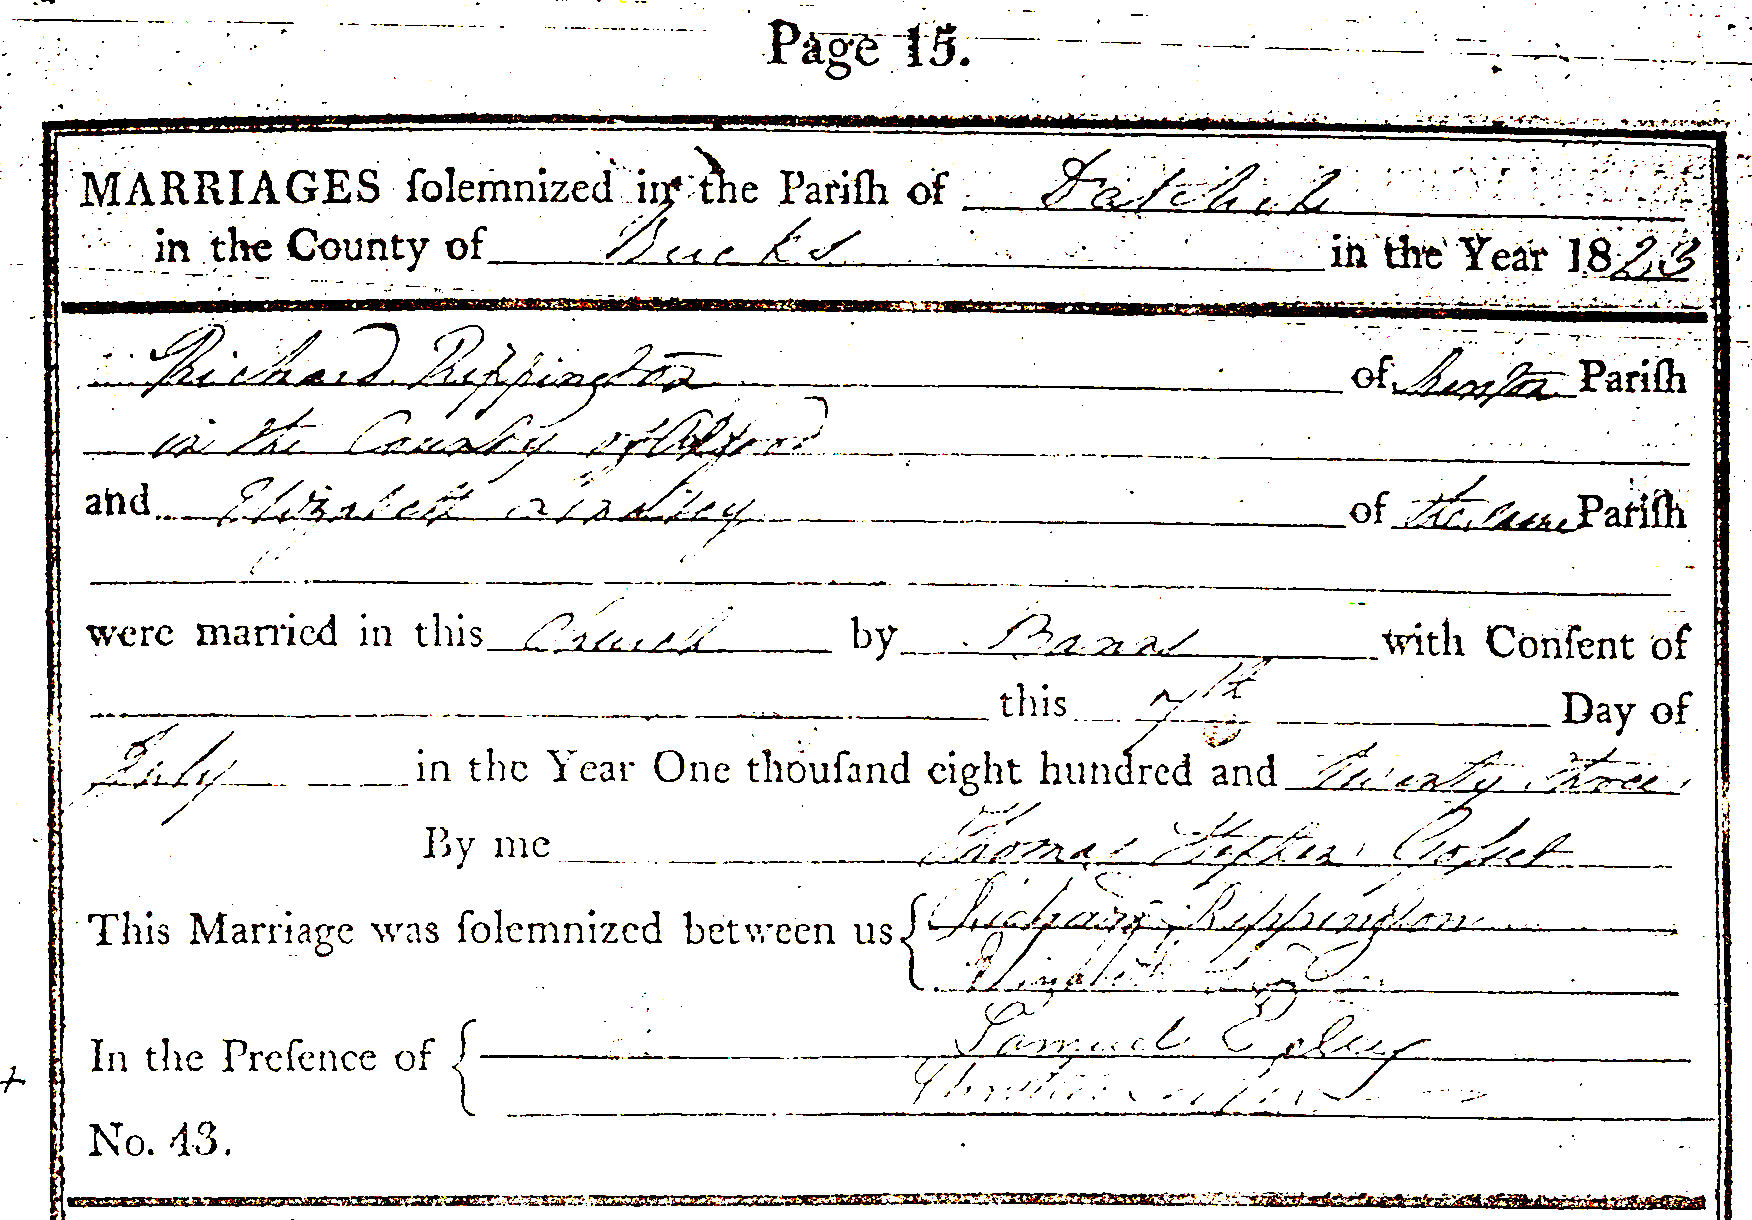 Page 15.
MARRIAGES ſolemnized in the Pariſh of Datchet
in the County of Bucks in the Year 1823
Richard Rippington of Pariſh
in the County of Oxford
and Elizabeth Lindsey of the same Pariſh
were married in this Church by Banns with Conſent of
this 7th Day of
July in the Year One thouſand eight hundred and twenty three
By me Thomas Stephen Gosset
This Marriage was ſolemnized between us Richard Rippington
Elizabeth
In the Preſence of Samuel
No. 43.
+